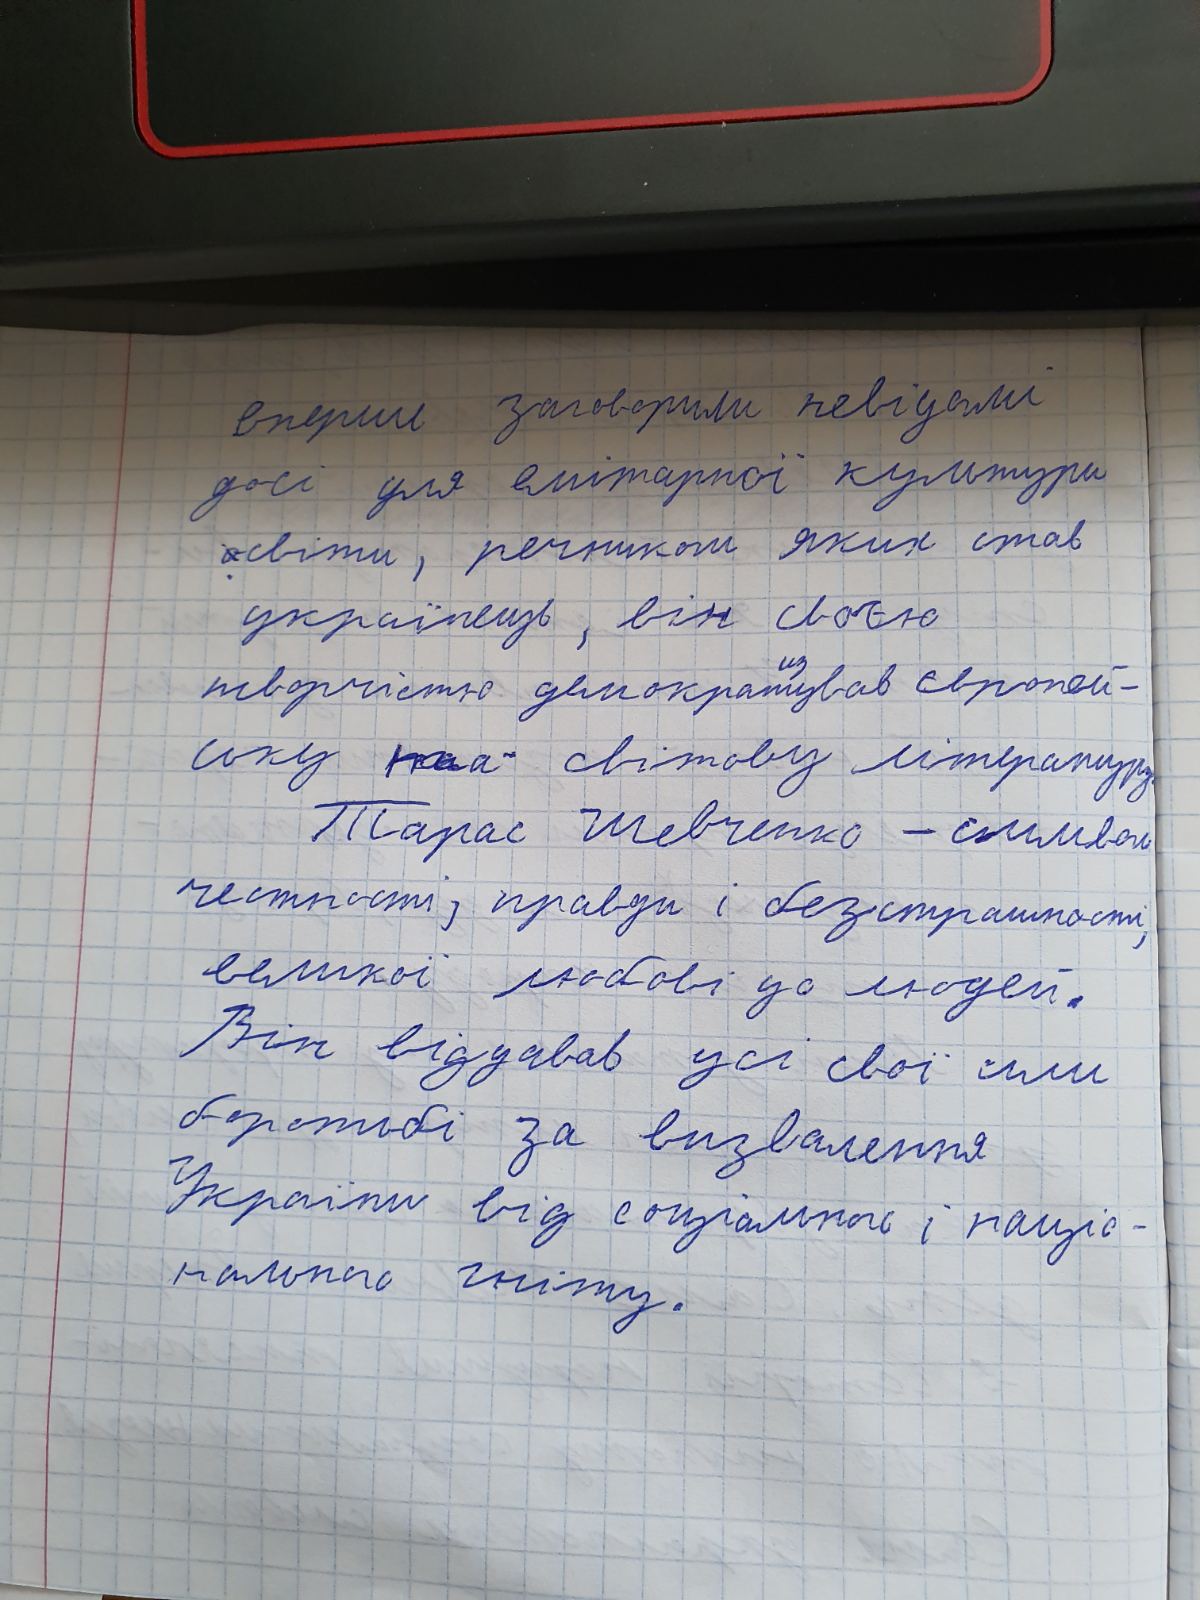 вперше заговорили невідомі
досі для елітарної культури
світи, речником яких став
українець, він своєю
творчістю демократизував європей-
ську а світову літературу.
Тарас Шевченко – символ
честності, правди і безстрашності,
великої любові до людей.
Він віддавав усі свої сили
боротьбі за визволення
України від соціального і націо-
нального гніту.